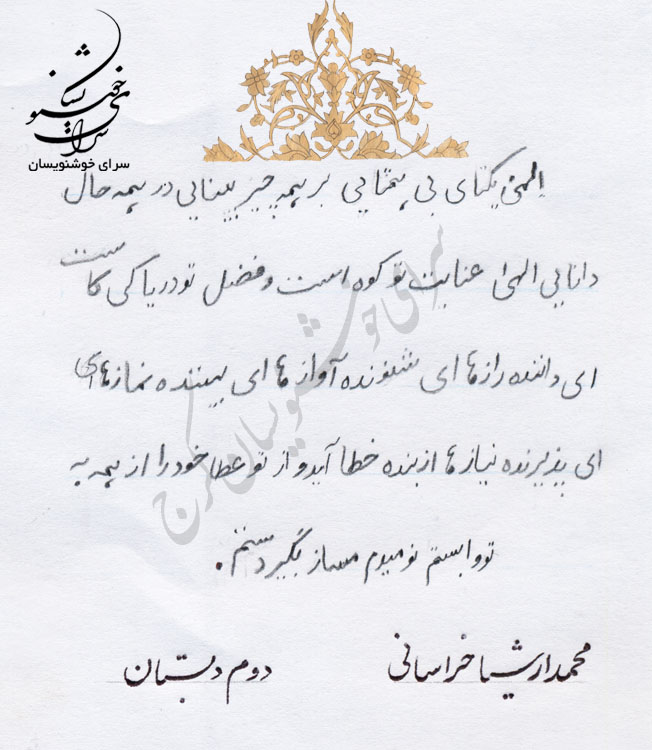 سرای خوشنویسان
سرای خوشنویسان
الهی یکتای بی همتایی بر همه چیز بینایی در همه حال
دانایی الهی عنایت تو کوه است و فضل تو دریا کی کاست
ای داننده رازها ای شنونده آوازها ای بیننده نمازها ای
ای پذیرنده نیازها از بنده خطا آید و از تو عطا خود را از همه به
تو وابستم نومیدم مساز بگیر دستم.
محمدارشیا خراسانی
دوم دبستان
سرای خوشنویسان کرج